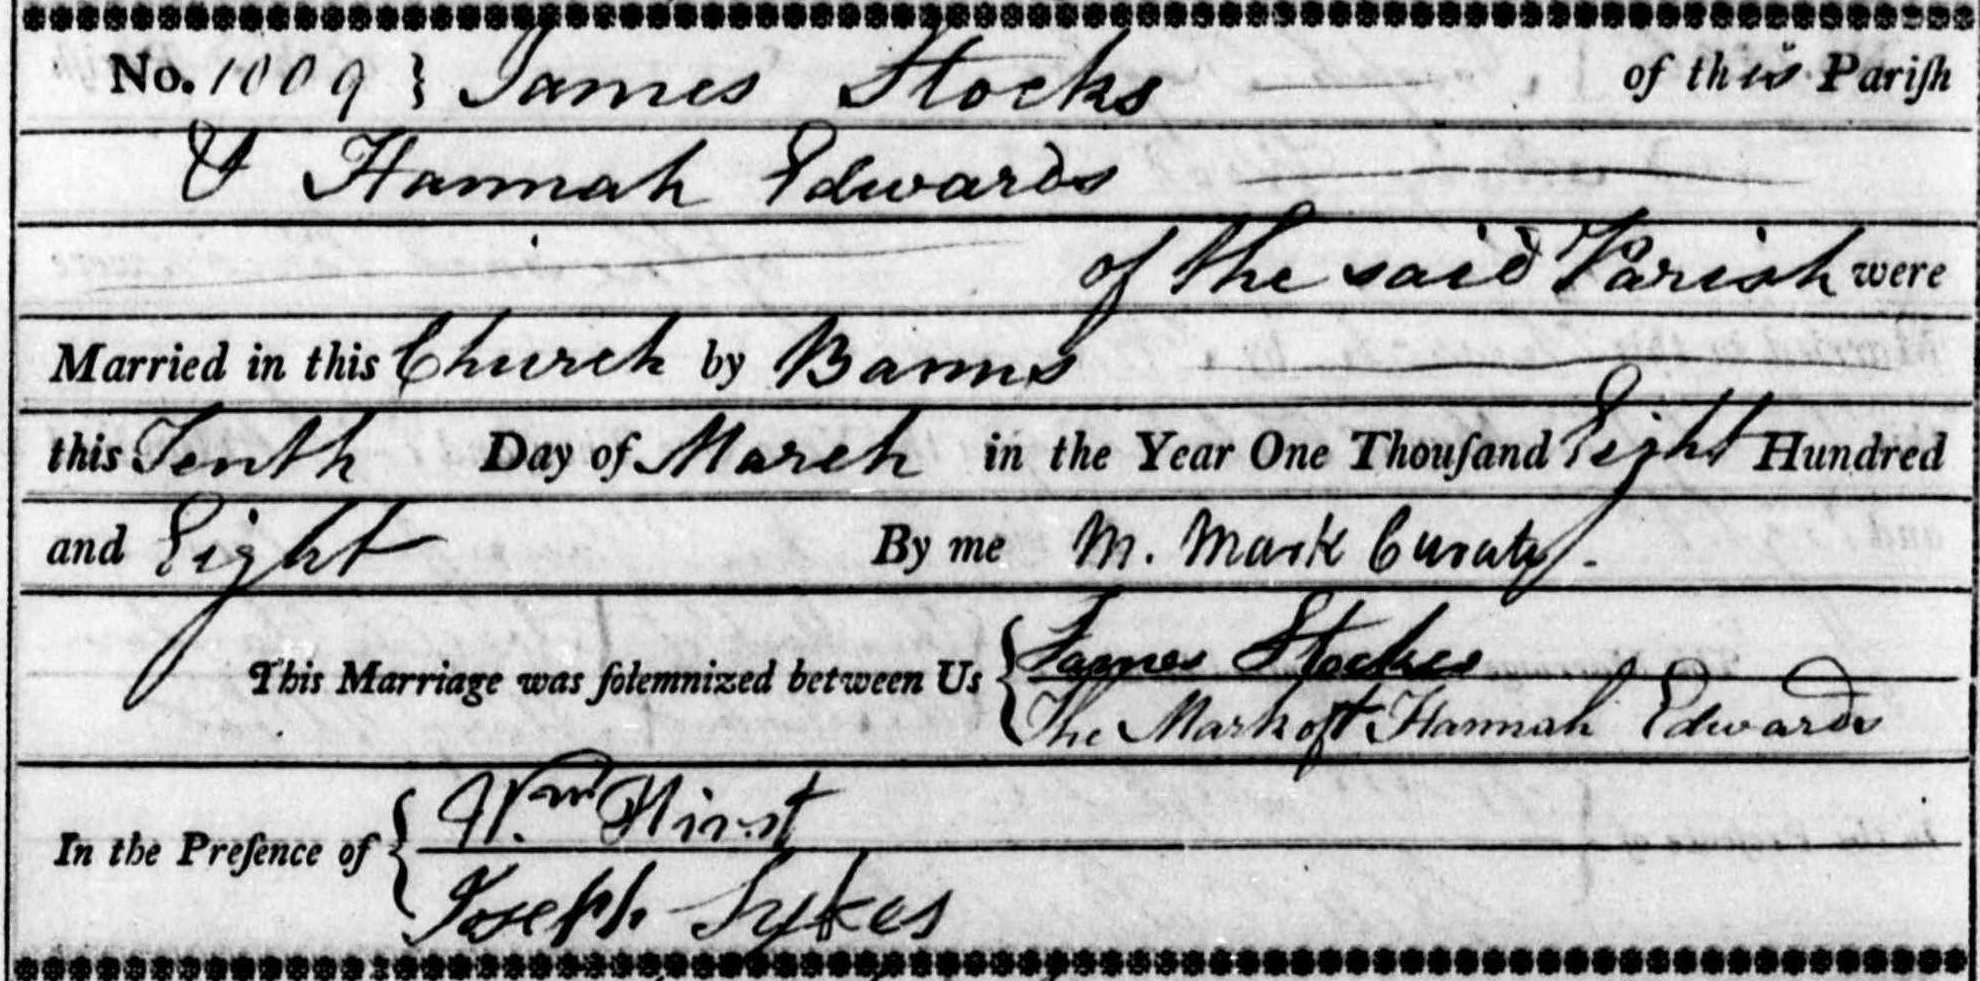 No. 1009 } James Stocks of this Pariſh
& Hannah Edwards
of the said Parish were
Married in this Church by Banns
this Tenth Day of March in the Year One Thouſand Eight Hundred
and Eight By me M. Mark Curate.
This Marriage was ſolemnized between Us { James Stockes
The Mark of + Hannah Edwards
In the Preſence of { Wm Hirst
Joseph Sykes